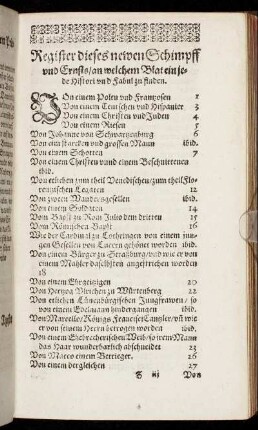 Register dieses newen Schimpff
vnd Ernsts/an welchem Blat ein je-
de Histori vnd Fabul zu finden.
Von einem Polen vnd Frantzosen 1
Von einem Teutschen vnd Hispanier 3
Von einem Christen vnd Juden 4
Von einem Riesen 5
Von Johanne von Schwartzenburg 6
Von ein starcken vnd grossen Mann ibid.
Von einem Schotten 7
Von einem Christen vnnd einem Beschnittenen
ibid.
Von etlichen zum theil Venedischen/zum theil Flo-
rentzischen Legaten 12
Von zweien Wandersgesellen ibid.
Von einem Soldaten 14
Von Bapst zu Rom Julio dem dritten 15
Vom Römischen Bapst 16
Wie der Cardinal zu Lothringen von einem jun-
gen Gesellen von Lucern gehönet worden ibid.
Von einem Bürger zu Straßburg/vnd wie er von
einem Mahler daselbsten angestrichen worden
18
Von einem Ehrgeitzigen 20
Von Hertzog Vlrichen zu Würtenberg 22
Von etlichen Lüneburgischen Jungfrawen/so
von einem Edelmann hindergangen ibid.
Von Marcello/Königs Francisci Cantzler/vñ wie
er von seinem Herrn betrogen worden ibid.
Von einem Ehbrecherischen Weib/so jrem Mann
das Haar wunderbarlich abschneidet 23
Von Marco einem Betrieger. 26
Von einem dergleichen 27
Von